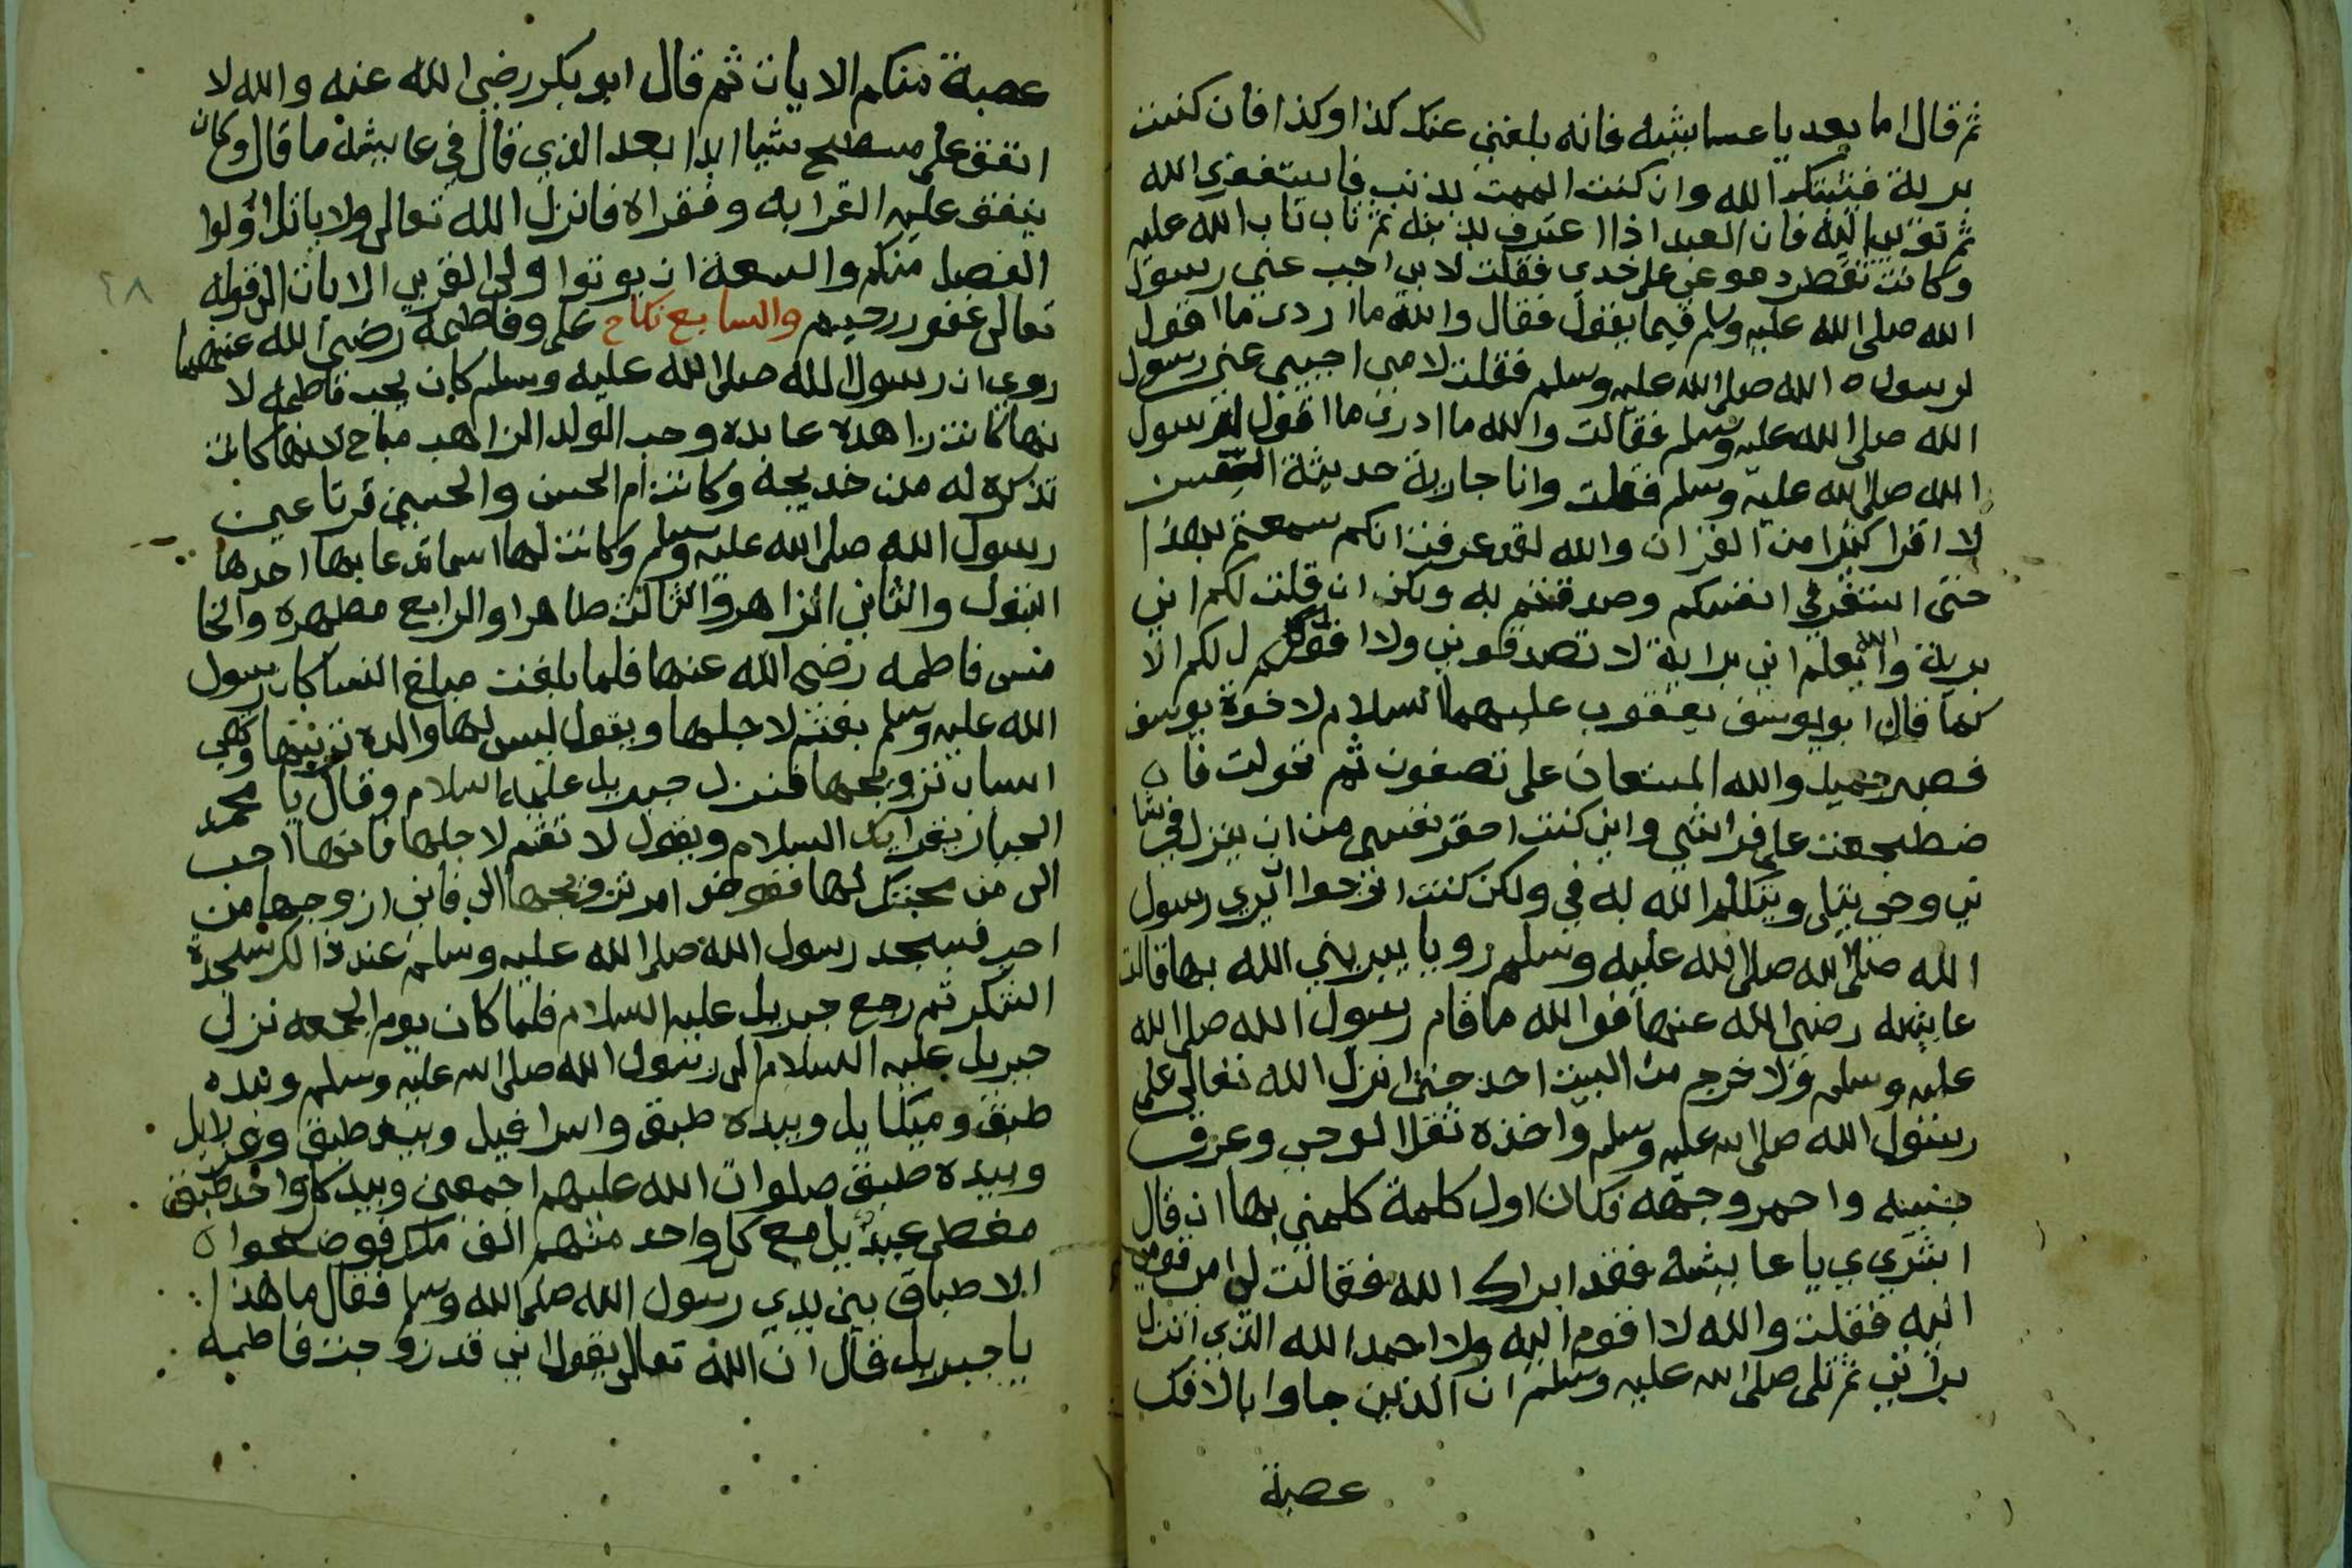 ثم قال اما بعد يا عسايشه فانه بلغني عنك كذا وكذا فان كنت
برية فيثبتك الله وان كنت الممت بذنب فاستغفري الله
ثم توبي اليه فان العبد اذا اعترف بذنبه ثم تاب تاب الله عليه
وكانت تقطر دموعي على خدي فقلت لابي اجب عني رسول
الله صلى الله عليه وسلم فيما يقول فقال والله ما ادرى ما اقول
لرسول ه الله صلى الله عليه وسلم فقلت لامي اجيبي عني رسول
الله صلى الله عليه وسلم فقالت والله ما ادرى ما اقول لرسول
الله صلى الله عليه وسلم فقلت وانا جارية حديثة السن
لا اقرا كثيرا من القران والله لقد عرفت انكم سمعتم بهذا
حتى استقر في انفسكم وصدقتم به ولان ان قلت لكم اني
برية والله يعلم اني براية لا تصدقوني ولا اقول لكم الا
كما قال ابو يوسف يعقوب عليهما السلام لاخوة يوسف
فصبر جميل والله المستعان على تصفون ثم تحولت فان
ضطجعت على فراشي واني كنت احقر نفسي من ان ينزل في شا
ني وحي يتلى ويتكلم الله به في ولكن كنت ارجوا ان يري رسول
الله صلى الله صلى الله عليه وسلم رويا يبريني الله بها قالت
عايشه رضي الله عنها فوالله ما قام رسول الله صلى الله
عليه وسلم ولا خرج من البيت احد حتى انزل الله تعالى على
رسول الله صلى الله عليه وسلم واخذه ثقل الوحي وعرق
جنبينه واحمر وجهه فكان اول كلمة كلمني بها ان قال
ابشري يا عايشه فقد ابراك الله فقالت لي امي قومي
اليه فقلت والله لا اقوم اليه ولا احمد الله الذي انزل
براني ثم تلى صلى الله عليه وسلم ان الذين جاوا بالافك
عصبة
عصبة منكم الايات ثم قال ابو بكر رضي الله عنه والله لا
انفق على مسطح شيا ابدا بعد الذي قال في عايشه ما قال وكان
ينفق عليه القرابه وفقراه فانزل الله تعالى ولا ياتل اولوا
الفضل منكم والسعة ان يوتوا ولي القربى الايات الى قوله
تعالى غفور رحيم والسابع نكاح على وفاطمه رضي الله عنهما
روى ان رسول الله صلى الله عليه وسلم كان يحب فاطمه لا
نها كانت زاهده عابده وحب الولد الزاهد مباح لانها كانت
تذكره له من خديجه وكانت ام الحسن والحسين قرتا عين
رسول الله صلى الله عليه وسلم وكانت لها اسما تدعا بها احدها
البتول والثاني الزاهر والثالث طاهرا والرابع مطهره والخا
مس فاطمه رضي الله عنها فلما بلغت مبلغ النسا كان رسول
الله عليه وسلم يغتم لاجلها ويقول ليس لها والده تزينها وتهي
اسباب تزويجها فنزل جبريل عليه السلام وقال يا محمد
الجبار يقرايك السلام ويقول لا تغتم لاجلها فانها احب
الى من محبتك لها ففوض امر تزويجها الي فاني ازوجها من
احب فسجد رسول الله صلى الله عليه وسلم عند ذالك سجدة
الشكر ثم رجع جبريل عليه السلام فلما كان يوم الجمعه نزل
جبريل عليه السلام الى رسول الله صلى الله عليه وسلم وبيده
طبق وميكايل وبيده طبق واسرافيل وبيده طبق وعزرايل
وبيده طبق صلوات الله عليهم اجمعين وبيد كل واحد طبق
مغطى بمنديل مع كل واحد منهم الف ملك فوضعوا ه
الاطباق بين يدي رسول الله صلى الله وسلم فقال ما هذا
يا جبريل قال ان الله تعالى يقول اني قد زوجت فاطمه
٤٨